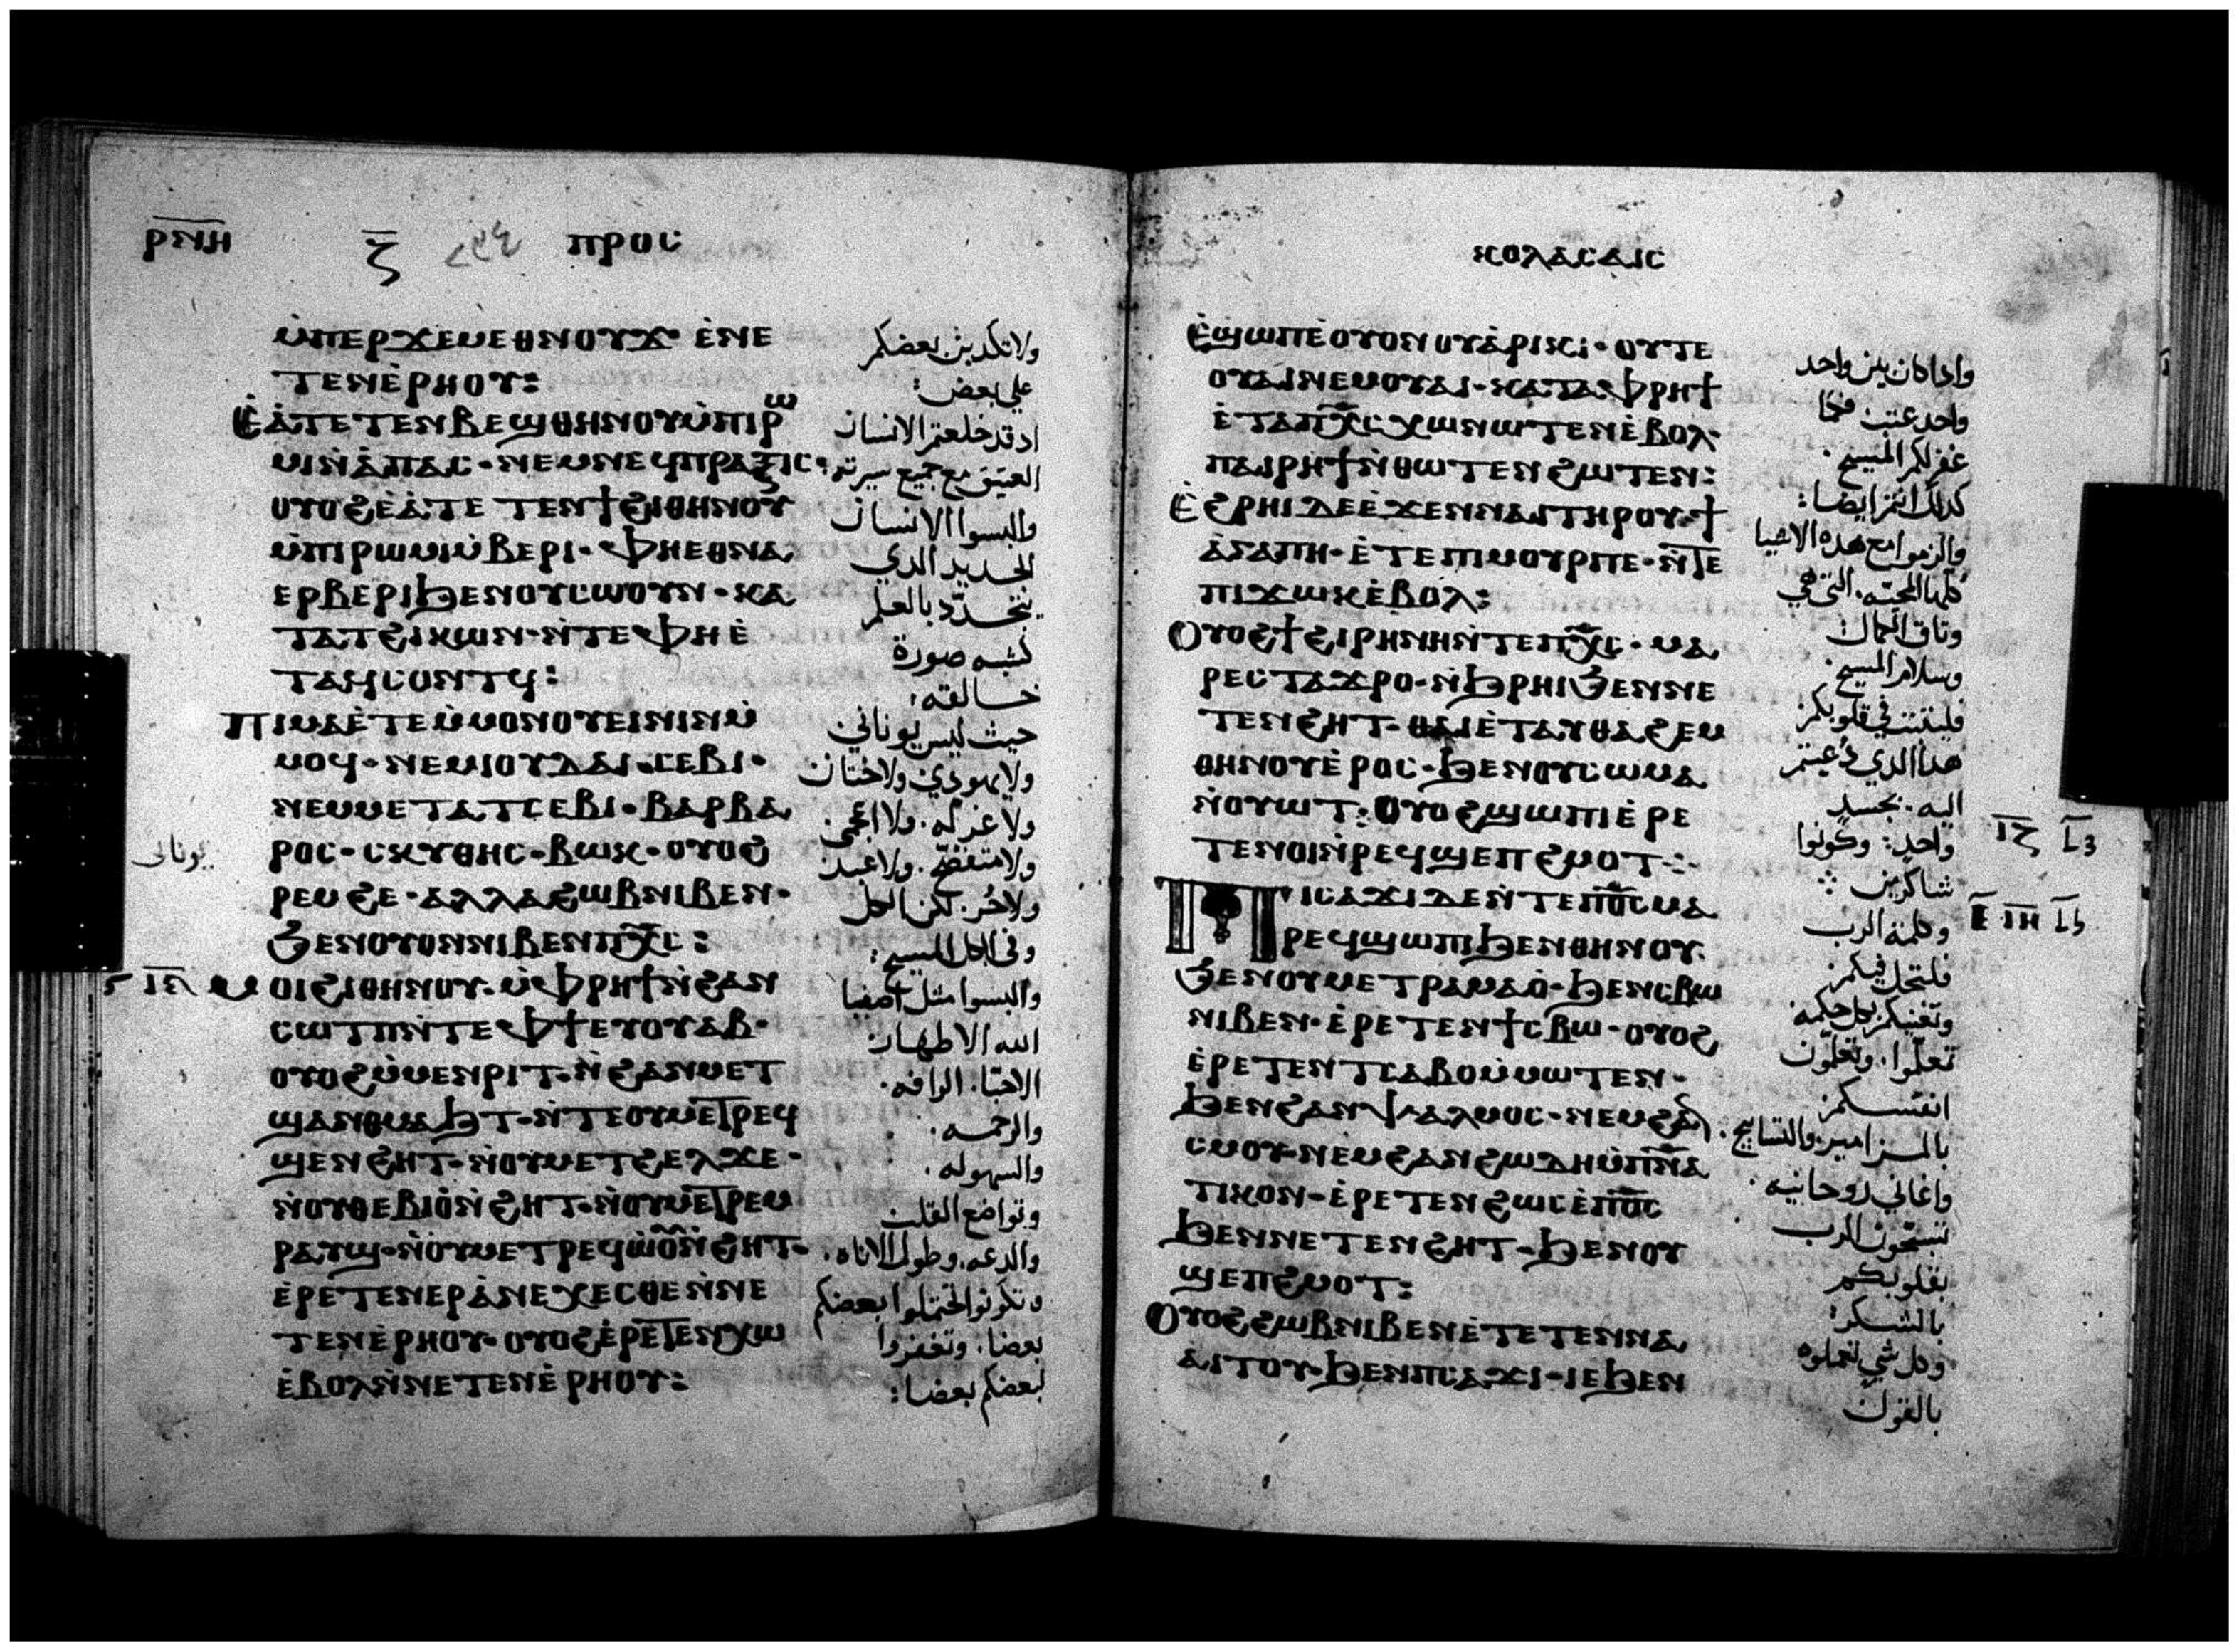 ⲣⲛⲏ
ⲍ
ⲡⲣⲟⲥ
ⲙ̀ⲡⲉⲣϫⲉⲙⲉⲑⲛⲟⲩϫ· ⲉ̀ⲛⲉ
ⲧⲉⲛⲉ̀ⲣⲏⲟⲩ:
ⲉ̀ⲁ̀ⲧⲉⲧⲉⲛⲃⲉϣⲑⲏⲛⲟⲩⲙ̀ⲡⲓⲣⲱ
ⲙⲓⲛ̀ⲁ̀ⲡⲁⲥ· ⲛⲉⲙⲛⲉϥⲡⲣⲁⲝⲓⲥ:
ⲟⲩⲟϩⲉ̀ⲁ̀ⲧⲉ ⲧⲉⲛϯϩⲓⲑⲏⲛⲟⲩ
ⲙ̀ⲡⲓⲣⲱⲙⲓⲙ̀ⲃⲉⲣⲓ· ⲫⲏⲉⲑⲛⲁ
ⲉⲣⲃⲉⲣⲓϧⲉⲛⲟⲩⲥⲱⲟⲩⲛ· ⲕⲁ
ⲧⲁⲧϩⲓⲕⲱⲛ· ⲛ̀ⲧⲉⲫⲏⲉ̀
ⲧⲁϥⲥⲟⲛⲧϥ:
ⲡⲓⲙⲁⲉ̀ⲧⲉⲙ̀ⲙⲟⲛⲟⲩⲉⲓⲛⲓⲛⲙ̀
ⲙⲟϥ· ⲛⲉⲙⲓⲟⲩⲇⲁⲓ· ⲥⲉⲃⲓ·
ⲛⲉⲙⲙⲉⲧⲁⲧⲥⲉⲃⲓ· ⲃⲁⲣⲃⲁ
ⲣⲟⲥ· ⲥⲕⲩⲑⲏⲥ· ⲃⲱⲕ· ⲟⲩⲟϩ
ⲣⲉⲙϩⲉ· ⲁⲗⲗⲁϩⲱⲃⲛⲓⲃⲉⲛ·
ϧⲉⲛⲟⲩⲟⲛⲛⲓⲃⲉⲛⲡⲭ̅ⲥ̅:
ⲙⲟⲓϩⲓⲑⲏⲛⲟⲩ· ⲙ̀ⲫⲣⲏϯⲛ̀ϩⲁⲛ
ⲥⲱⲧⲡⲛ̀ⲧⲉⲫϯⲉⲩⲟⲩⲁⲃ·
ⲟⲩⲟϩⲙ̀ⲙⲉⲛⲣⲓⲧ· ⲛ̀ϩⲁⲛⲙⲉⲧ
ϣⲁⲛⲑⲙⲁϧⲧ· ⲛ̀ⲧⲉⲟⲩⲙⲉⲧⲣⲉϥ
ϣⲉⲛϩⲏⲧ· ⲛ̀ⲟⲩⲙⲉⲧϩⲉⲗϫⲉ·
ⲛ̀ⲟⲩⲑⲉⲃⲓⲟ̀ⲛ̀ϩⲏⲧ· ⲛ̀ⲟⲩⲙⲉⲧⲣⲉⲙ
ⲣⲁⲩϣ· ⲛ̀ⲟⲩⲙⲉⲧⲣⲉϥⲱ̀ⲟⲩⲛ̀ϩⲏⲧ·
ⲉ̀ⲣⲉⲧⲉⲛⲉⲣⲁ̀ⲛⲉⲭⲉⲥⲑⲉⲛ̀ⲛⲉ
ⲧⲉⲛⲉ̀ⲣⲏⲟⲩ· ⲟⲩⲟϩⲉ̀ⲣⲉⲧⲉⲛⲭⲱ
ⲉ̀ⲃⲟⲗⲛ̀ⲛⲉⲧⲉⲛⲉ̀ⲣⲏⲟⲩ:
ولا تكدبن بعضكم
على بعض:
اد قد خلعتم الانسان
العتيق مع جميع سيرته:
والبسوا الانسان
الجديد الدي
يتجدد بالعلم
كشبه صورة
خالقه:
حيث ليس يوناني
ولا يهودي ولا ختان
ولا غرله. ولا اعجمي
ولا عبد
ولا حر. لكن الكل
وفى الكل المسيح:
والبسوا مثل اصفيا
الله الاطهار
الاحبا. الرافه.
والرحمه.
والسهوله.
وتواضع القلب
والدعه. وطول الاناه.
وتكونوا تحتملوا بعضكم
بعضا. وتغفروا
لبعضكم بعضا:
يونانى
ⲕⲟⲗⲁⲥⲁⲓⲥ
ⲉ̀ϣⲱⲡⲉ̀ⲟⲩⲟⲛ ⲟⲩⲁ̀ⲣⲓⲕⲓ· ⲟⲩⲧⲉ
ⲟⲩⲁⲓⲛⲉⲙⲟⲩⲁⲓ· ⲕⲁⲧⲁⲫⲣⲏϯ
ⲉ̀ⲧⲁⲡⲭ̅ⲥ̅ⲭⲱⲛⲱⲧⲉⲛⲉ̀ⲃⲟⲗ·
ⲡⲁⲓⲣⲏϯⲛ̀ⲑⲱⲧⲉⲛ ϩⲱⲧⲉⲛ:
ⲉ̀ϩⲣⲏⲓⲇⲉⲉ̀ϫⲉⲛⲛⲁⲓⲧⲏⲣⲟⲩ· ϯ
ⲁ̀ⲅⲁⲡⲏ· ⲉ̀ⲧⲉⲡⲓⲙⲟⲩⲣⲡⲉ· ⲛ̀ⲧⲉ
ⲡⲓϫⲱⲕⲉ̀ⲃⲟⲗ:
ⲟⲩⲟϩϯϩⲓⲣⲏⲛⲏⲛ̀ⲧⲉⲡⲭ̅ⲥ̅· ⲙⲁ
ⲣⲉⲥⲧⲁϫⲣⲟ· ⲛ̀ϧⲣⲏⲓϧⲉⲛⲛⲉ
ⲧⲉⲛϩⲏⲧ· ⲑⲁⲓⲉ̀ⲧⲁⲩⲑⲁϩⲉⲙ
ⲑⲏⲛⲟⲩⲉ̀ⲣⲟⲥ· ϧⲉⲛⲟⲩⲥⲱⲙⲁ
ⲛ̀ⲟⲩⲱⲧ: ⲟⲩⲟϩϣⲱⲡⲓⲉ̀ⲣⲉ
ⲧⲉⲛⲟⲓⲛ̀ⲣⲉϥϣⲉⲡϩⲙⲟⲧ:
ⲡⲓⲥⲁϫⲓⲇⲉⲛ̀ⲧⲉⲡⲟ̅ⲥ̅ⲙⲁ
ⲣⲉϥϣⲱⲡⲓϧⲉⲛⲑⲏⲛⲟⲩ·
ϧⲉⲛⲟⲩⲙⲉⲧⲣⲁⲙⲁⲟ̀· ϧⲉⲛⲥⲃⲱ
ⲛⲓⲃⲉⲛ· ⲉ̀ⲣⲉⲧⲉⲛϯⲥⲃⲱ· ⲟⲩⲟϩ
ⲉ̀ⲣⲉⲧⲉⲛⲧⲥⲁⲃⲟⲙ̀ⲙⲱⲧⲉⲛ·
ϧⲉⲛϩⲁⲛⲯⲁⲗⲙⲟⲥ· ⲛⲉⲙϩⲁⲛ
ⲥⲙⲟⲩ· ⲛⲉⲙϩⲁⲛϩⲱⲇⲏⲙ̀ⲡ̅ⲛ̅ⲁ̅
ⲧⲓⲕⲟⲛ· ⲉ̀ⲣⲉⲧⲉⲛϩⲱⲥⲉ̀ⲡⲟ̅ⲥ̅
ϧⲉⲛⲛⲉⲧⲉⲛϩⲏⲧ· ϧⲉⲛⲟⲩ
ϣⲉⲡϩⲙⲟⲧ:
ⲟⲩⲟϩϩⲱⲃⲛⲓⲃⲉⲛⲉ̀ⲧⲉⲧⲉⲛⲛⲁ
ⲁⲓⲧⲟⲩ· ϧⲉⲛⲡⲥⲁϫⲓ· ⲓⲉϧⲉⲛ
وادا كان بين واحد
واحد عتب فكما
غفر لكم المسيح.
كدلك انتم ايضا:
والزموا مع هده الاشيا
كلها المحبه. التى هي
وثاق الكمال:
وسلام المسيح.
فليثبت في قلوبكم
هدا الدي دعيتم
اليه. بجسد
واحد: وكونوا
شاكرين
وكلمة الرب
فلتحل فيكم
وتغنيكم بكل حكمه
تعلموا. وتعلمون
انفسكم
بالمزامير. والتسابيح.
واغاني روحانيه
تسبحون الرب
بقلوبكم
بالشكر:
وكل شي تعملوه
بالقول
ⲓⲍ
ⲉ ⲓⲏ